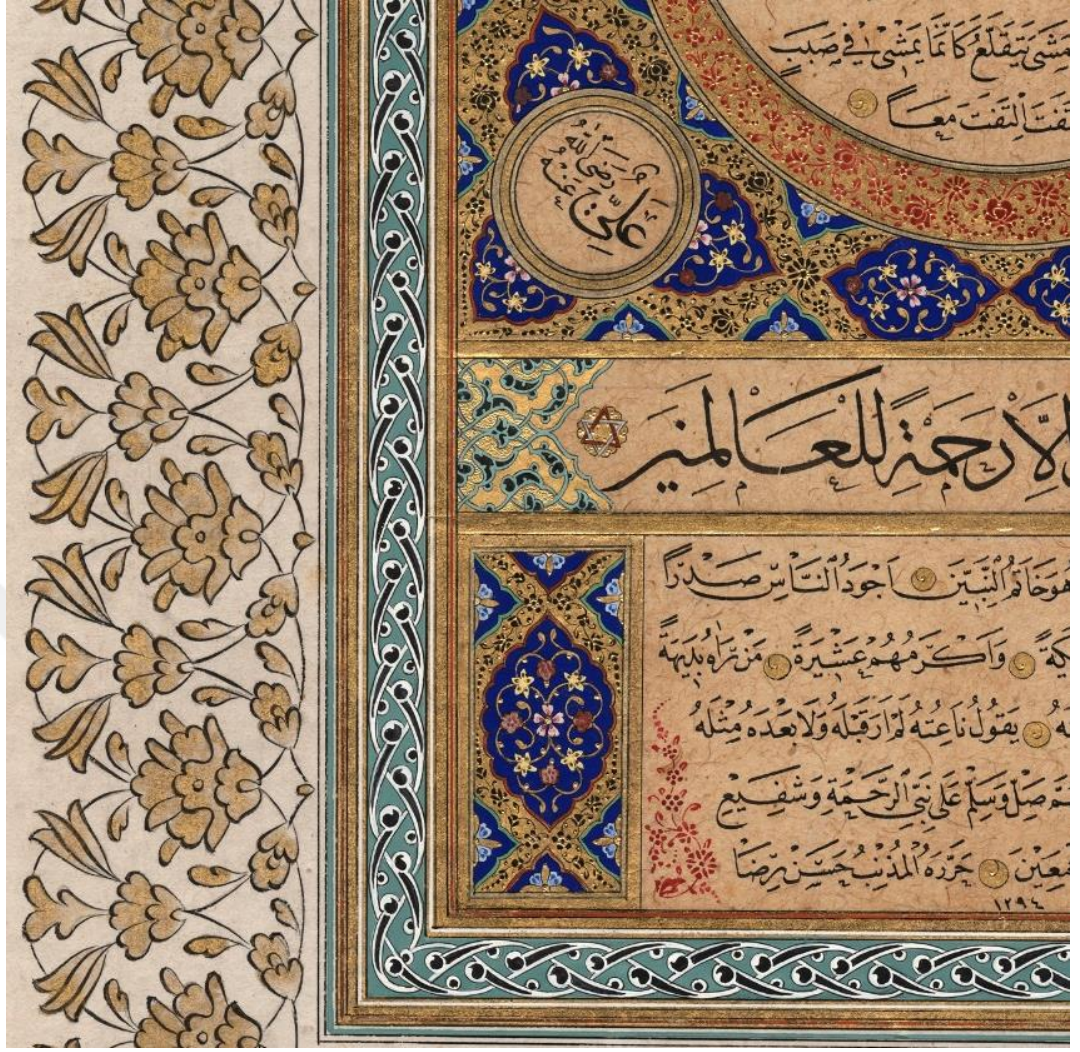 مَشَى يَتَقَلَّعُ كَاَنَّمَا يَمْشِى فِى صَبَبٍ
اِلْتَفَتَ مَعًا
عَلِيٌّ رَضِيَ اللهُ عَنْهُ
اِلَّا رَحْمَةً لِلْعَالَمِينَ
هُوَ خَاتَمُ النَّبِيِّينَ اَجْوَدُ النَّاسِ صَدْرًا
وَاَكْرَمُهُمْ عَشِيرَةً مَنْ رَاٰهُ بَدِيهَةً
يَقُولُ نَاعِتُهُ لَمْ اَرَ قَبْلَهُ وَلَا بَعْدَهُ مِثْلَهُ
صَلِّ وَسَلِّمْ عَلَى نَبِيِّ الرَّحْمَةِ وَشَفِيعِ
حَرَّرَهُ الْمُذْنِبُ حَسَنْ رِضَا
١٢٩٤